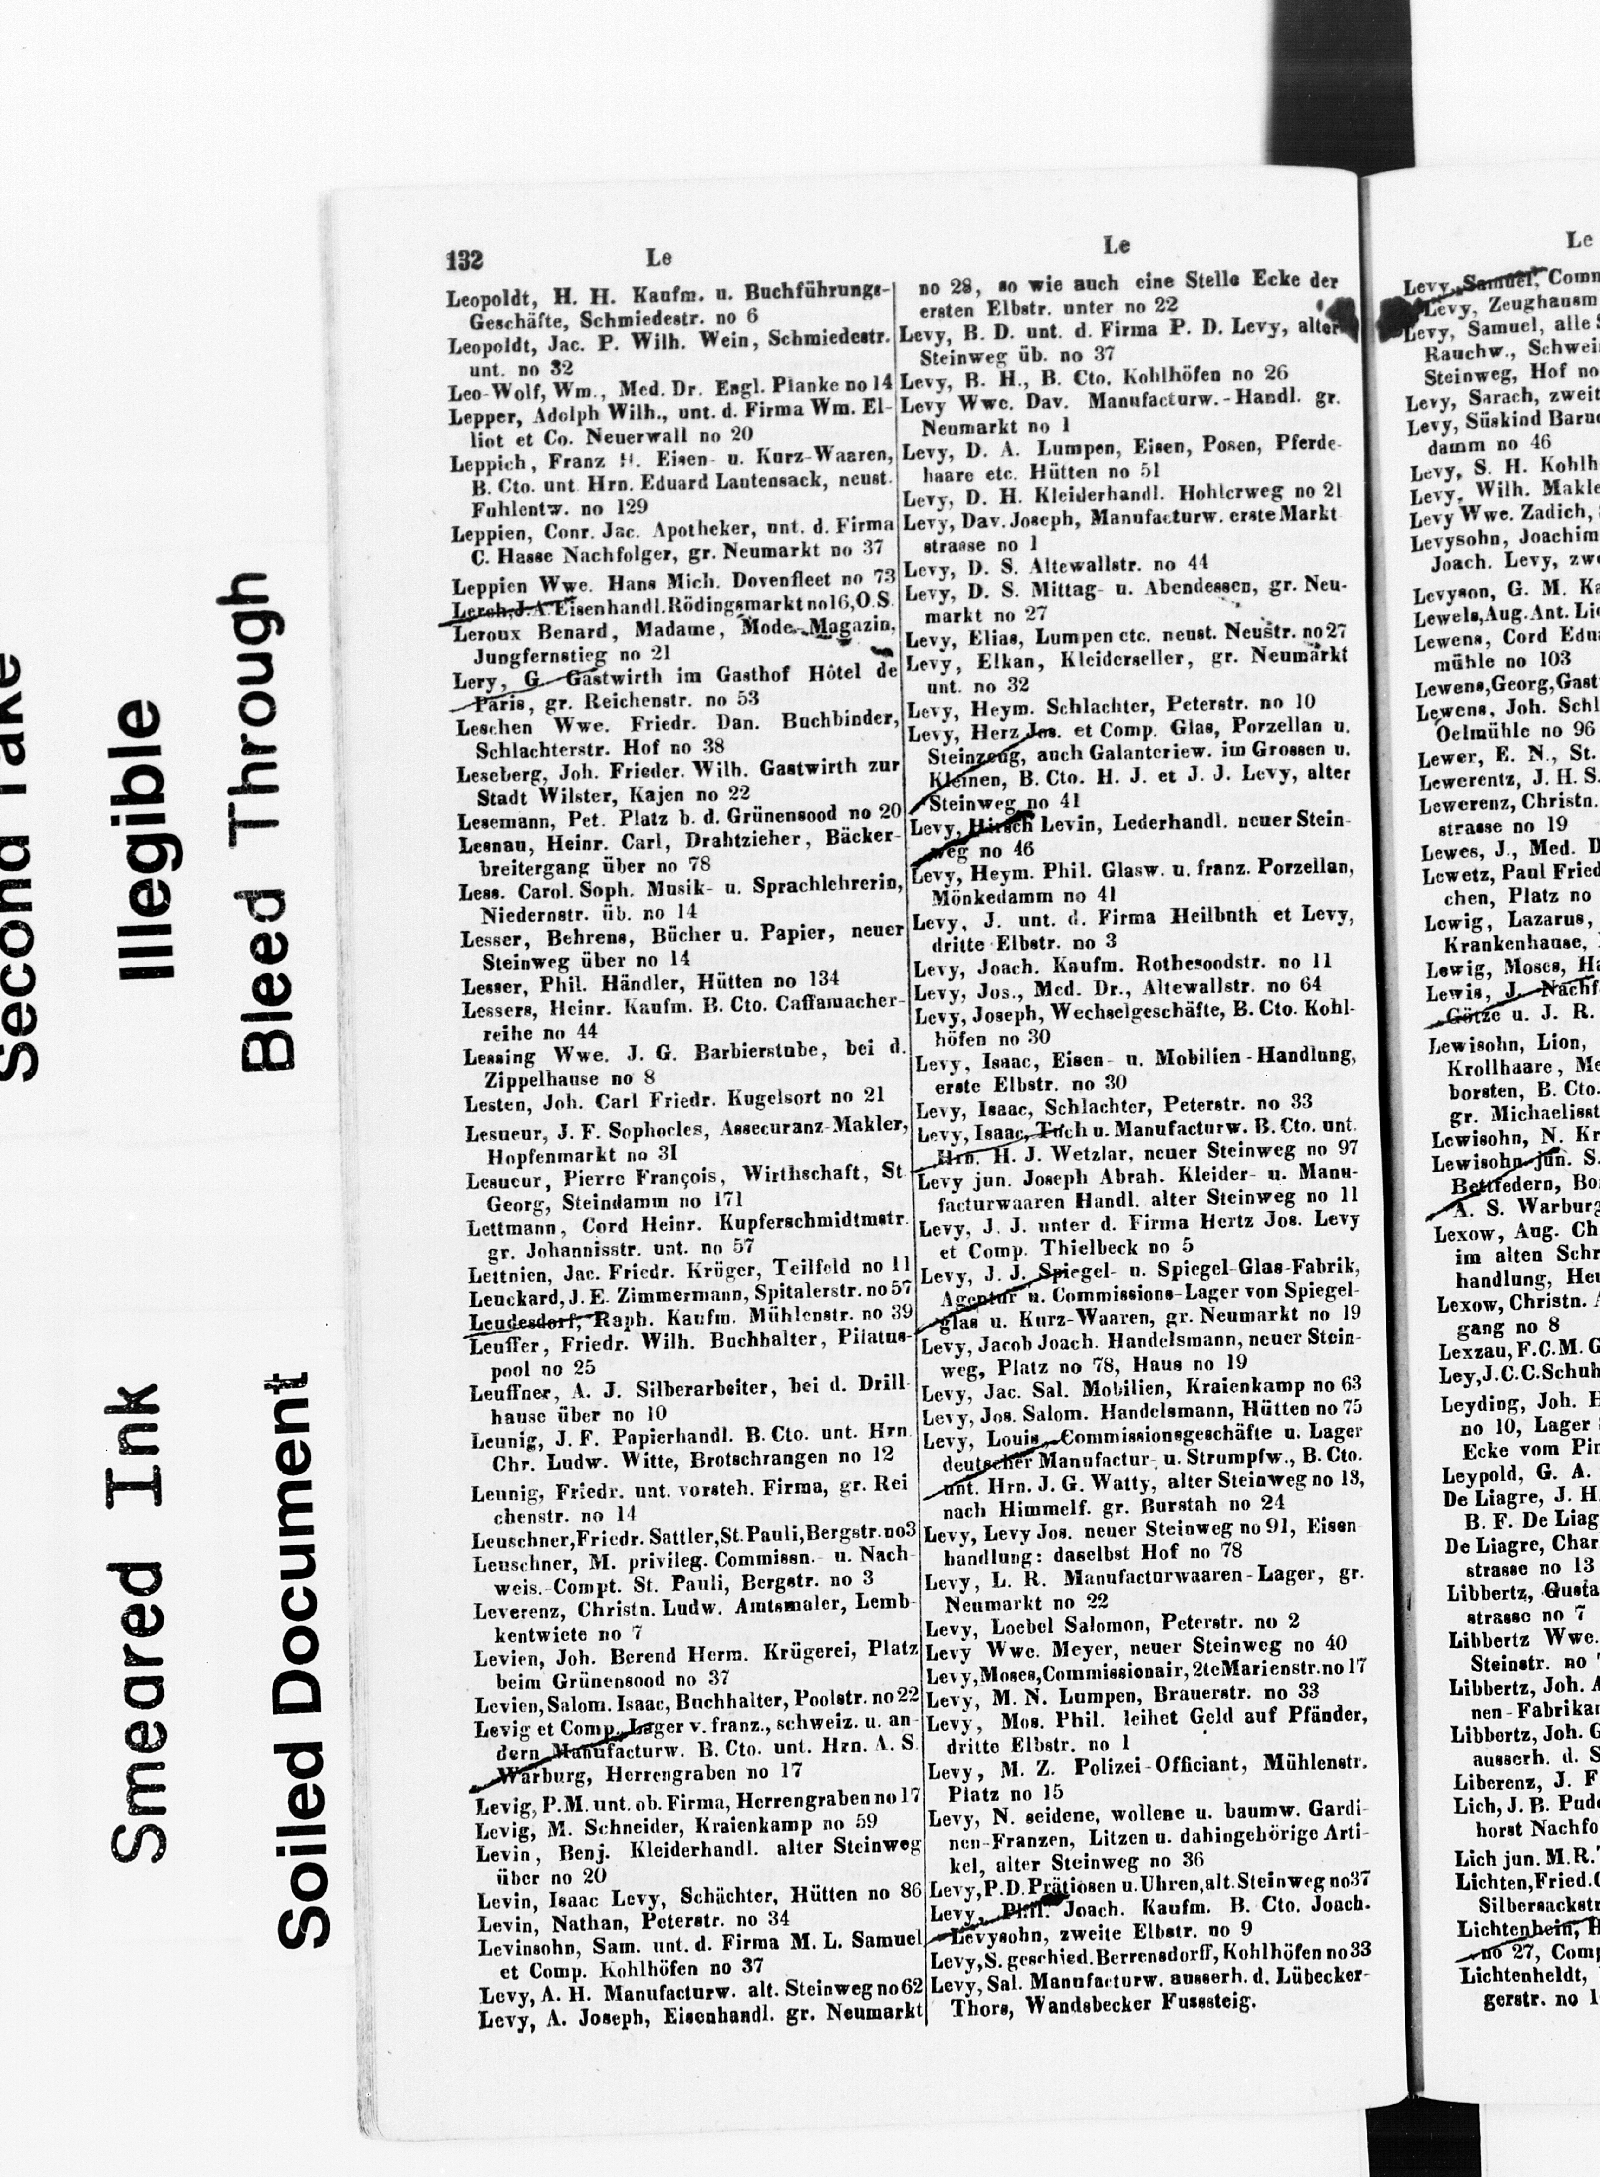 Second Take
Illegible
Bleed Through
Smeared Ink
Soiled Document
132 Le
Leopoldt, H. H. Kaufm. u. Buchführungs-
Geschäfte, Schmiedestr. no 6
Leopoldt, Jac. P. Wilh. Wein, Schmiedestr.
unt. no 32
Leo-Wolf, Wm., Med. Dr. Engl. Planke no 14
Lepper, Adolph Wilh., unt. d. Firma Wm. El-
liot et Co. Neuerwall no 20
Leppich, Franz H. Eisen- u. Kurz-Waaren,
B. Cto. unt Hrn. Eduard Lautensack, neust.
Fuhlentw. no 129
Leppien, Conr. Jac. Apotheker, unt. d. Firma
C. Hasse Nachfolger, gr. Neumarkt no 37
Leppien Wwe. Hans Mich. Dovenfleet no 73
Lerch, J. A. Eisenhandl. Rödingsmarkt no 16, O.S.
Leroux Benard, Madame, Mode-Magazin,
Jungfernstieg no 21
Lery, G. Gastwirth im Gasthof Hôtel de
Paris, gr. Reichenstr. no 53
Leschen Wwe. Friedr. Dan. Buchbinder,
Schlachterstr. Hof no 38
Leseberg, Joh. Frieder. Wilh. Gastwirth zur
Stadt Wilster, Kajen no 22
Lesemann, Pet. Platz b. d. Grünensood no 20
Lesnau, Heinr. Carl, Drahtzieher, Bäcker-
breitergang über no 78
Less. Carol. Soph. Musik- u. Sprachlehrerin,
Niedernstr. üb. no 14
Lesser, Behrens, Bücher u. Papier, neuer
Steinweg über no 14
Lesser, Phil. Händler, Hütten no 134
Lessers, Heinr. Kaufm. B. Cto. Caffamacher-
reihe no 44
Lessing Wwe. J. G. Barbierstube, bei d.
Zippelhause no 8
Lesten, Joh. Carl Friedr. Kugelsort no 21
Lesueur, J. F. Sophocles, Assecuranz-Makler,
Hopfenmarkt no 31
Lesueur, Pierre François, Wirthschaft, St
Georg, Steindamm no 171
Lettmann, Cord Heinr. Kupferschmidtmstr.
gr. Johannisstr. unt. no 57
Lettnien, Jac. Friedr. Krüger, Teilfeld no 11
Leuckard, J. E. Zimmermann, Spitalerstr. no 57
Leudesdorf, Raph. Kaufm. Mühlenstr. no 39
Leuffer, Friedr. Wilh. Buchhalter, Pilatus-
pool no 25
Leuffner, A. J. Silberarbeiter, bei d. Drill-
hause über no 10
Leunig, J. F. Papierhandl. B. Cto. unt. Hrn
Chr. Ludw. Witte, Brotschrangen no 12
Leunig, Friedr. unt. vorsteh. Firma, gr. Rei
chenstr. no 14
Leuschner, Friedr. Sattler, St. Pauli, Bergstr. no 3
Leuschner, M. privileg. Commissn.- u. Nach-
weis.-Compt. St. Pauli, Bergstr. no 3
Leverenz, Christn. Ludw. Amtsmaler, Lemb-
kentwiete no 7
Levien, Joh. Berend Herm. Krügerei, Platz
beim Grünensood no 37
Levien, Salom. Isaac, Buchhalter, Poolstr. no 22
Levig et Comp. Lager v. franz., schweiz. u. an-
dern Manufacturw. B. Cto. unt. Hrn. A. S.
Warburg, Herrengraben no 17
Levig, P. M. unt. ob. Firma, Herrengraben no 17
Levig, M. Schneider, Kraienkamp no 59
Levin, Benj. Kleiderhandl. alter Steinweg
über no 20
Levin, Isaac Levy, Schächter, Hütten no 86
Levin, Nathan, Peterstr. no 34
Levinsohn, Sam. unt. d. Firma M. L. Samuel
et Comp. Kohlhöfen no 37
Levy, A. H. Manufacturw. alt. Steinweg no 62
Levy, A. Joseph, Eisenhandl. gr. Neumarkt
Le
no 28, so wie auch eine Stelle Ecke der
ersten Elbstr. unter no 22
Levy, B. D. unt. d. Firma P. D. Levy, alter
Steinweg üb. no 37
Levy, B. H., B. Cto. Kohlhöfen no 26
Levy Wwe. Dav. Manufacturw.-Handl. gr.
Neumarkt no 1
Levy, D. A. Lumpen, Eisen, Posen, Pferde-
haare etc. Hütten no 51
Levy, D. H. Kleiderhandl. Hohlerweg no 21
Levy, Dav. Joseph, Manufacturw. erste Markt
strasse no 1
Levy, D. S. Altewallstr. no 44
Levy, D. S. Mittag- u. Abendessen, gr. Neu-
markt no 27
Levy, Elias, Lumpen etc. neust. Neustr. no 27
Levy, Elkan, Kleiderseller, gr. Neumarkt
unt. no 32
Levy, Heym. Schlachter, Peterstr. no 10
Levy, Herz Jos. et Comp. Glas, Porzellan u.
Steinzeug, auch Galanteriew. im Grossen u.
Kleinen, B. Cto. H. J. et J. J. Levy, alter
Steinweg no 41
Levy, Hirsch Levin, Lederhandl. neuer Stein-
weg no 46
Levy, Heym. Phil. Glasw. u. franz. Porzellan,
Mönkedamm no 41
Levy, J. unt. d. Firma Heilbuth et Levy,
dritte Elbstr. no 3
Levy, Joach. Kaufm. Rothesoodstr. no 11
Levy, Jos., Med. Dr., Altewallstr. no 64
Levy, Joseph, Wechselgeschäfte, B. Cto. Kohl-
höfen no 30
Levy, Isaac, Eisen- u. Mobilien-Handlung,
erste Elbstr. no 30
Levy, Isaac, Schlachter, Peterstr. no 33
Levy, Isaac, Tuch u. Manufacturw. B. Cto. unt.
Hrn. H. J. Wetzlar, neuer Steinweg no 97
Levy jun. Joseph Abrah. Kleider- u. Manu-
facturwaaren Handl. alter Steinweg no 11
Levy, J. J. unter d. Firma Hertz Jos. Levy
et Comp. Thielbeck no 5
Levy, J. J. Spiegel- u. Spiegel-Glas-Fabrik,
Agentur u. Commissions-Lager von Spiegel-
glas u. Kurz-Waaren, gr. Neumarkt no 19
Levy, Jacob Joach. Handelsmann, neuer Stein-
weg, Platz no 78, Haus no 19
Levy, Jac. Sal. Mobilien, Kraienkamp no 63
Levy, Jos. Salom. Handelsmann, Hütten no 75
Levy, Louis, Commissionsgeschäfte u. Lager
deutscher Manufactur- u. Strumpfw., B. Cto.
unt. Hrn. J. G. Watty, alter Steinweg no 18,
nach Himmelf. gr. Burstah no 24
Levy, Levy Jos. neuer Steinweg no 91, Eisen
handlung: daselbst Hof no 78
Levy, L. R. Manufacturwaaren-Lager, gr.
Neumarkt no 22
Levy, Loebel Salomon, Peterstr. no 2
Levy Wwe. Meyer, neuer Steinweg no 40
Levy, Moses, Commissionair, 2te Marienstr. no 17
Levy, M. N. Lumpen, Brauerstr. no 33
Levy, Mos. Phil. leihet Geld auf Pfänder,
dritte Elbstr. no 1
Levy, M. Z. Polizei-Officiant, Mühlenstr.
Platz no 15
Levy, N. seidene, wollene u. baumw. Gardi-
nen-Franzen, Litzen u. dahingehörige Arti-
kel, alter Steinweg no 36
Levy, P. D. Prätiosen u. Uhren, alt. Steinweg no 37
Levy, Phil. Joach. Kaufm. B. Cto. Joach.
Levysohn, zweite Elbstr. no 9
Levy, S. geschied. Berrensdorff, Kohlhöfen no 33
Levy, Sal. Manufacturw. ausserh. d. Lübecker-
Thors, Wandsbecker Fusssteig.
Le
Levy, Samuel, Comm
Levy, Zeughausm
Levy, Samuel, alle S
Rauchw., Schwei
Steinweg, Hof no
Levy, Sarach, zweit
Levy, Süskind Baruc
damm no 46
Levy, S. H. Kohlh
Levy, Wilh. Makle
Levy Wwe. Zadich,
Levysohn, Joachim
Joach. Levy, zwe
Levyson, G. M. Ka
Lewels, Aug. Ant. Lic
Lewens, Cord Edu
mühle no 103
Lewens, Georg, Gast
Lewens, Joh. Schl
Oelmühle no 96
Lewer, E. N., St.
Lewerentz, J. H. S.
Lewerenz, Christn.
strasse no 19
Lewes, J., Med. D
Lewetz, Paul Fried
chen, Platz no
Lewig, Lazarus,
Krankenhause,
Lewig, Moses, Ha
Lewis, J. Nachf
Götze u. J. R.
Lewisohn, Lion,
Krollhaare, Me
borsten, B. Cto.
gr. Michaelisst
Lewisohn, N. Kr
Lewisohn jun. S.
Bettfedern, Bo
A. S. Warburg
Lexow, Aug. Ch
im alten Schr
handlung, Heu
Lexow, Christn. A
gang no 8
Lexzau, F. C. M. G
Ley, J. C. C. Schuh
Leyding, Joh. H
no 10, Lager
Ecke vom Pin
Leypold, G. A.
De Liagre, J. H.
B. F. De Liag
De Liagre, Char
strasse no 13
Libbertz, Gusta
strasse no 7
Libbertz Wwe.
Steinstr. no
Libbertz, Joh. A
nen-Fabrikan
Libbertz, Joh. G
ausserh. d. S
Liberenz, J. F
Lich, J. B. Pude
horst Nachfo
Lich jun. M. R.
Lichten, Fried. C
Silbersackstr
Lichtenhein, H
no 27, Comp
Lichtenheldt,
gerstr. no 1